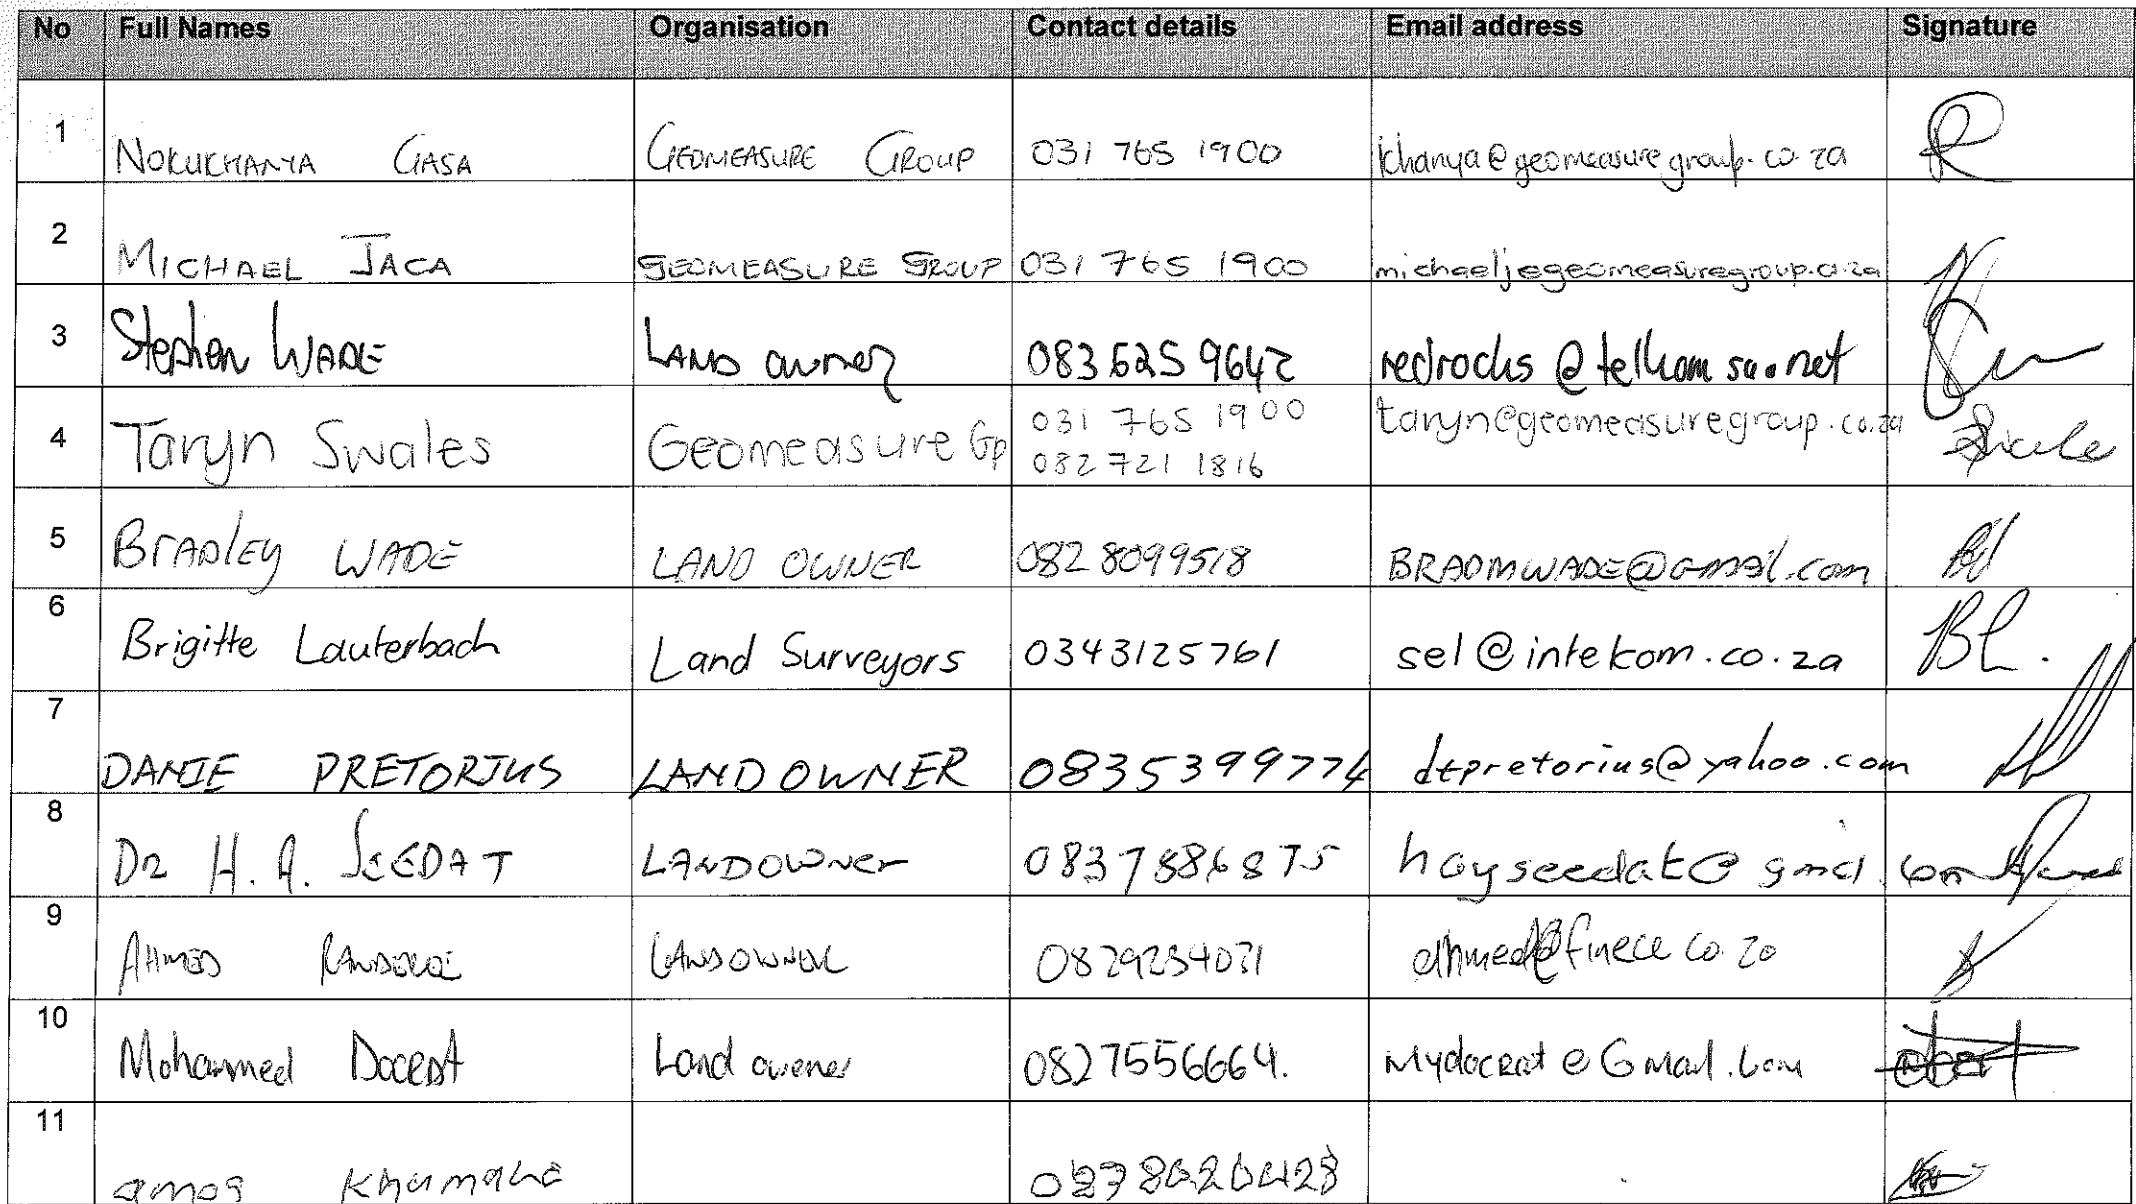 No Full Names Organisation Contact details Email address Signature
1 NOKUKHANYA GASA GEOMEASURE GROUP 031 765 1900 khanya@geomeasuregroup.co.za
2 MICHAEL JACA GEOMEASURE GROUP 031 765 1900 michaelj@geomeasuregroup.co.za
3 Stephen WADE LAND owner 083 625 9642 redrocks@telkomsa.net
4 Taryn Swales Geomeasure Gp 031 765 1900 taryn@geomeasuregroup.co.za
082 721 1816
5 BRADLEY WADE LAND OWNER 082 8099518 BRADMWADE@Gmail.com
6 Brigitte Lauterbach Land Surveyors 0343125761 sel@intekom.co.za BL.
7 DANIE PRETORIUS LANDOWNER 0835399774 dtpretorius@yahoo.com
8 DR H. A. SEEDAT LANDOWNer 0837886875 hayseedat@gmail.com
9 AHMED RANDEREE LANDOWNER
10 Mohammed Docrat Land owener 0827556664. Mydocrat@Gmail.com
11 amos Khumalo